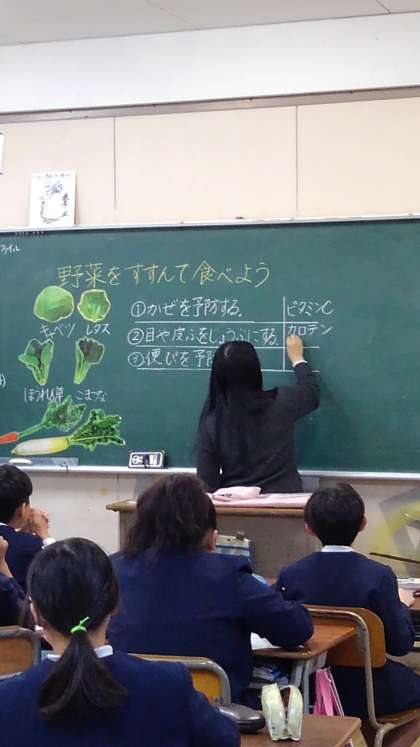 ファイル
野菜をすすんで食べよう
①かぜを予防する。
ビタミンC
キャベツ
レタス
②目や皮ふをじょうぶにする。
カロテン
③便ぴを予防
ほうれん草
こまつな